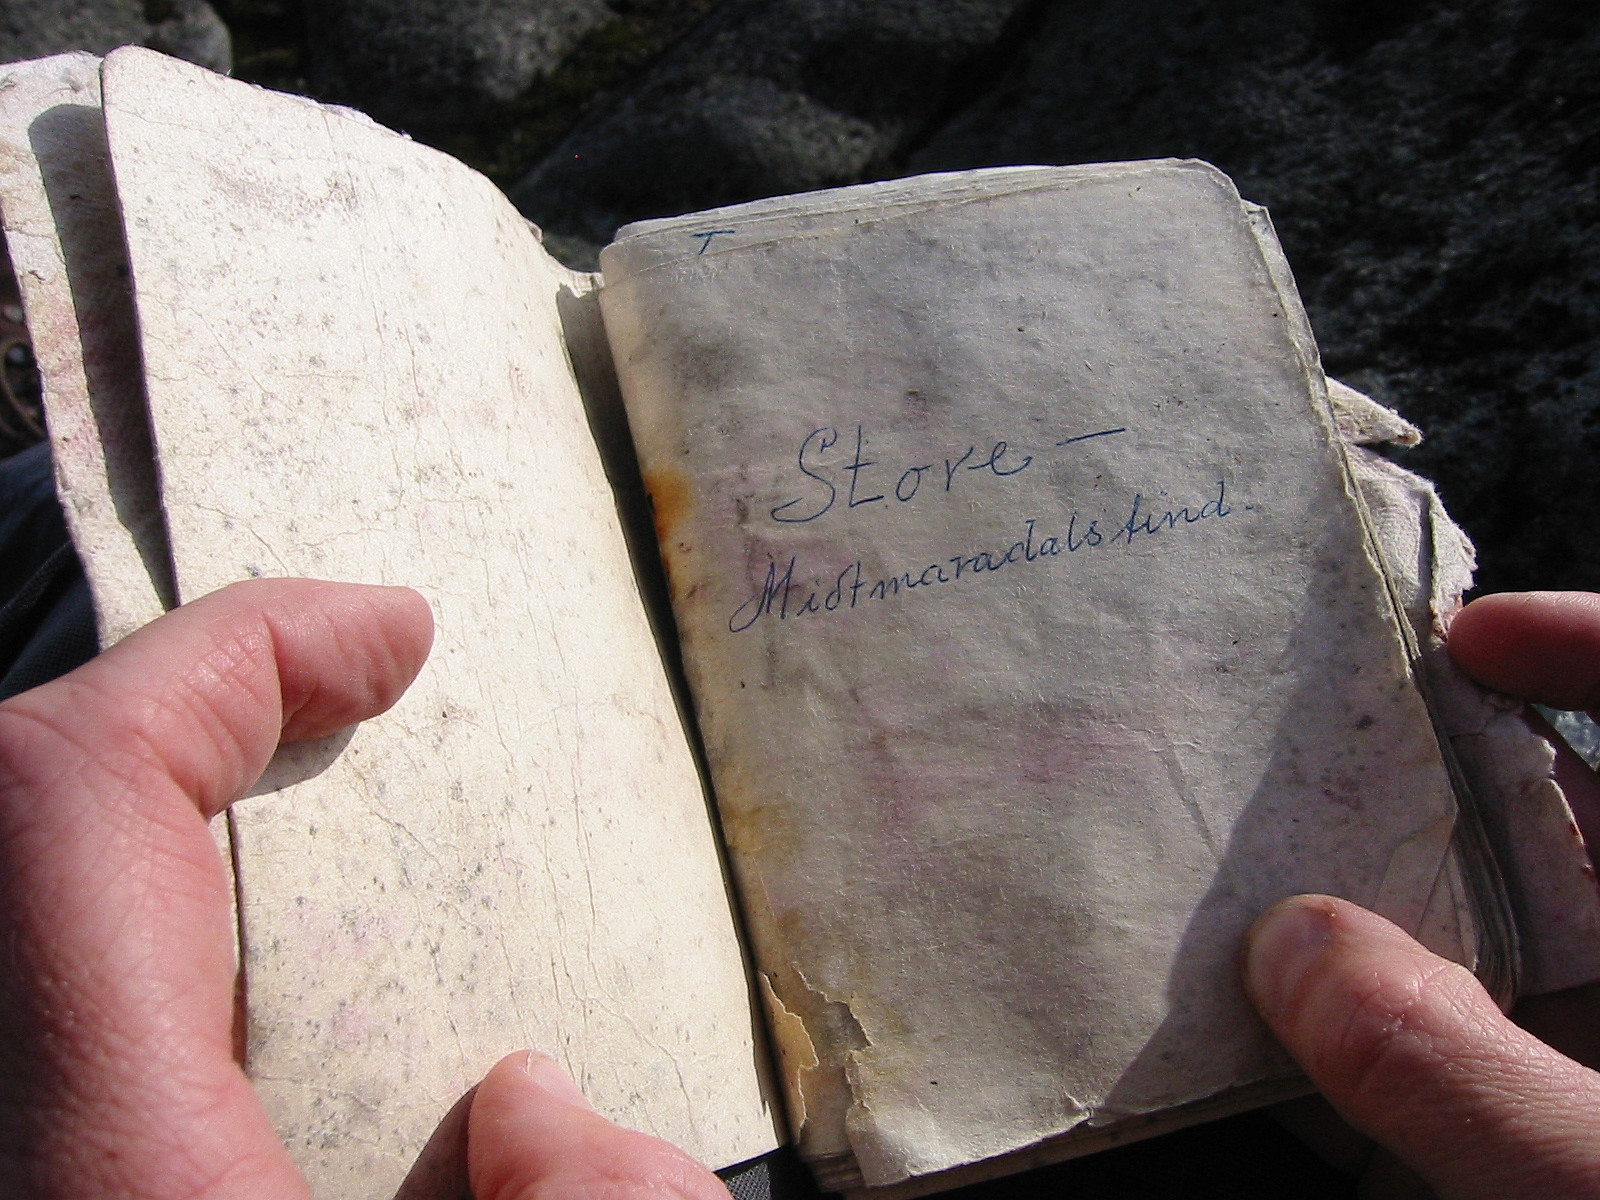 T
Store —
Midtmaradalstind.